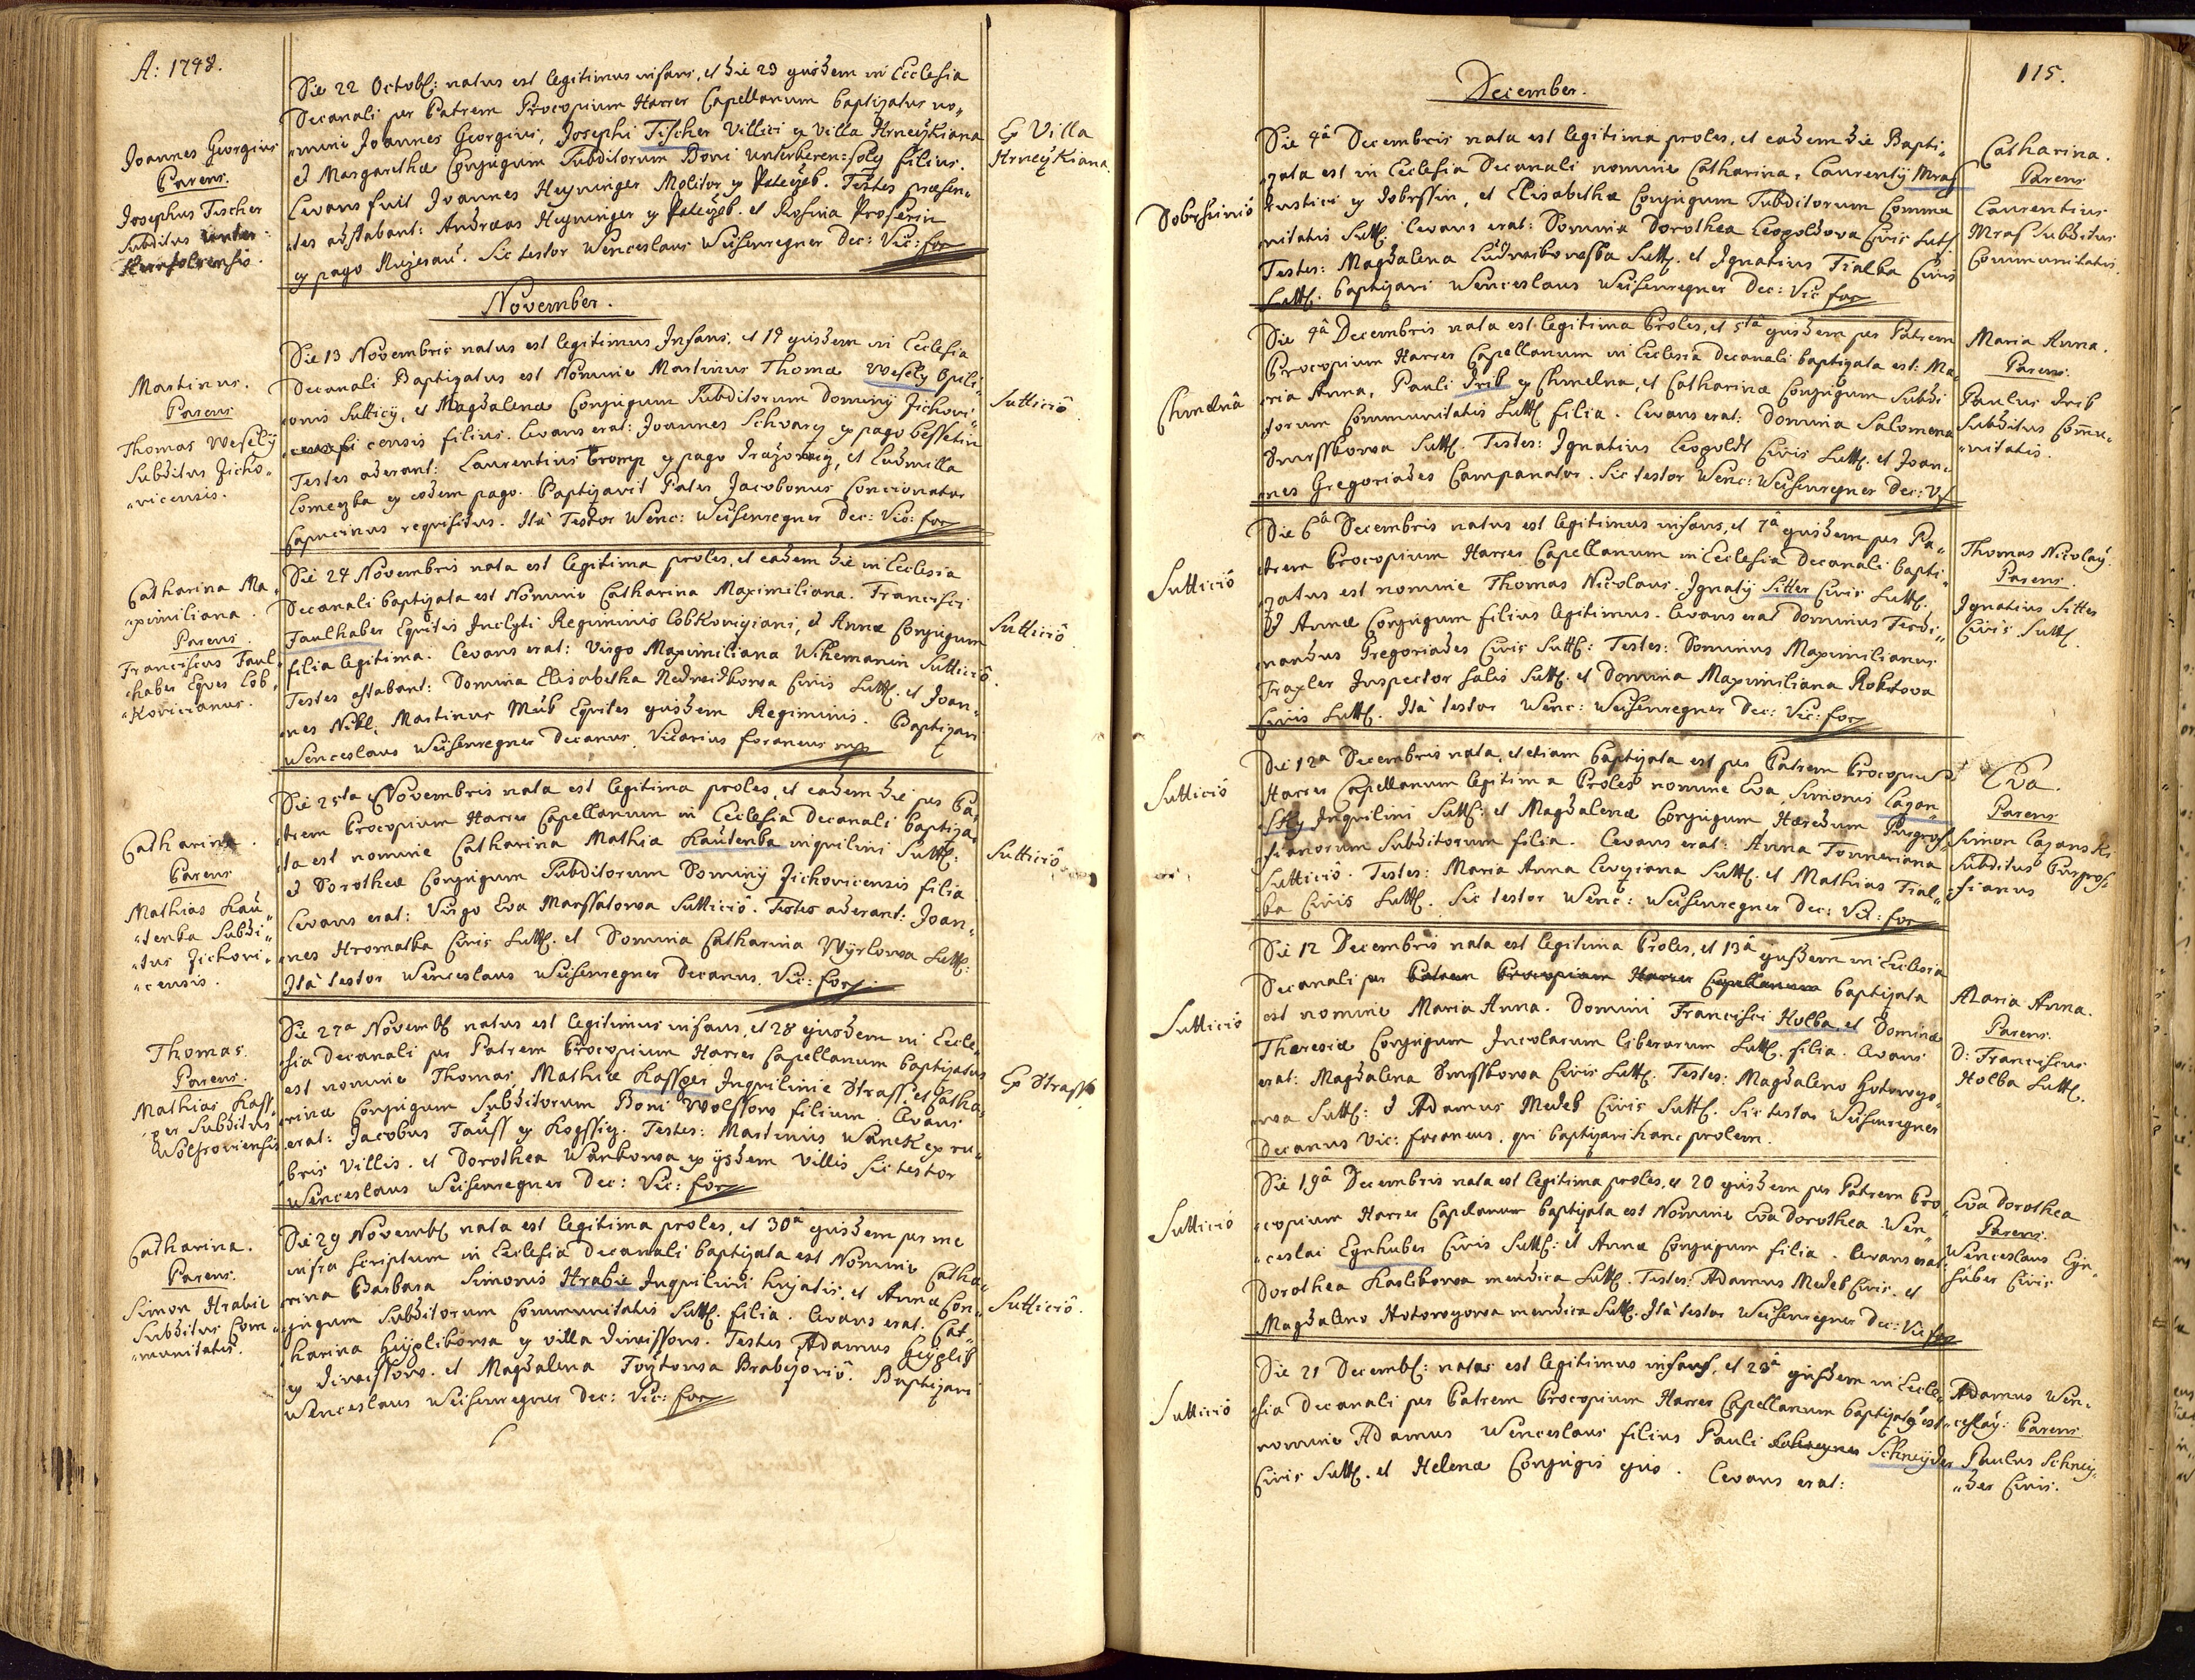 A: 1748.
Joannes Georgius
Parens.
Josephus Fischer
Subditus unter-
Die 22 Octobr: natus est legitimus infans, et die 23 ejusdem in Ecclesia
Decanali per Patrem Procopium Harrer Capellanum baptizatus no„
„mine Joannes Georgius, Josephi Fischer Villici ex Villa Hrneÿkiana
et Margarethæ Conjugum Subditorum Boni filius.
Levans fuit Joannes Heyninger Molitor ex Testes præsen„
„tes adstabant: Andreas Heyninger ex et Rosina
ex pago Sic testor Wenceslaus Weisenregner Dec: Vic: for
Ex Villa
Hrneÿkiana
November.
Martinus.
Parens
Thomas Weselÿ
Subditus Zicho„
„vicensis.
Die 13 Novembris natus est legitimus Infans, et 14 ejusdem in Ecclesia
Decanali Baptizatus est Nomine Martinus Thomæ Weselÿ Opili„
„onis Sutticÿ, et Magdalenæ Conjugum Subditorum Dominÿ Zichovi„
censis filius. Levans erat: Joannes Schvarz ex pago
Testes aderant: Laurentius ex pago et Ludmilla
ex eodem pago. Baptizavit Pater Jacobonus Concionator
Capucinus requisitus. Ità Testor Wenc: Weisenregner Dec: Vic: for
Sutticiô
Catharina Ma„
„ximiliana.
Parens.
Franciscus Faul„
„haber Eques Lob„
„kovicianus.
Die 24 Novembris nata est legitima proles, et eadem die in Ecclesia
Decanali baptizata est Nomine Catharina Maximiliana. Francisci
Faulhaber Equitis Inclyti Regiminis Lobkoviziani, et Annæ Conjugum
filia legitima. Levans erat: Virgo Maximiliana Sutticiô.
Testes astabant: Domina Elisabetha Nedwidkowa Civis Sutt. et Joan„
„nes Nikl, Martinus Equites ejusdem Regiminis. Baptizavi
Wenceslaus Weisenregner Decanus, Vicarius foraneus mp
Sutticiô
Catharina.
Parens
Mathias Kau„
„tenka Subdi„
„tus Zichovi„
„censis.
Die 25ta Novembris nata est legitima proles, et eadem die per Pa„
„trem Procopium Harrer Capellanum in Ecclesia Decanali baptiza„
„ta est nomine Catharina Mathiæ Kautenka inquilini Sutt:
et Dorotheæ Conjugum Subditorum Dominÿ Zichovicensis filia
Levans erat: Virgo Eva Marssalowa Sutticiô. Testes aderant: Joan„
„nes Hromatka Civis Sutt. et Domina Catharina Sutt:
Ità testor Wenceslaus Weisenregner Decanus, Vic: for
Sutticiô
Thomas.
Parens.
Mathias Kass„
„per Subditus
Die 27a Novemb natus est legitimus infans, et 28 ejusdem in Eccle„
„sia Decanali per Patrem Procopium Harrer Capellanum baptizatus
est nomine Thomas, Mathiæ Kassper Inquilini Strass, et Catha„
„rinæ Conjugum Subditorum Boni Wolssow filium. Levans
erat: Jacobus Tauss ex Testes: Martinus Wanek ex ru„
„bris Villis. et Dorothea Wankowa ex ÿsdem Villis Sic testor
Wenceslaus Weisenregner Dec: Vic: for
Ex Strass
Catharina.
Parens.
Simon Hrabie
Subditus Com„
„munitatis.
Die 29 Novemb nata est legitima proles, et 30â ejusdem per me
infra scriptum in Ecclesia Decanali baptizata est Nomine Catha„
„rina Barbara Simonis Hrabie Inquilini hujatis, et Annæ Con„
„jugum Subditorum Communitatis Sutt. filia. Levans erat. Cat„
„harina ex villa Testes Adamus
ex et Magdalena Baptizavi
Wenceslaus Weisenregner Dec: Vic: for
Sutticiô.
115.
December.
Die 4â Decembris nata est legitima proles, et eadem die Bapti„
„zata est in Ecclesia Decanali nomine Catharina, Laurentÿ Mras
Rustici ex Dobrssin, et Elisabethæ Conjugum Subditorum Commu„
nitatis Sutt. Levans erat: Domina Dorothea Leopoldova Civis Sutt
Testes: Magdalena Sutt. et Ignatius Fialka Civis
Sutt. baptizavi Wenceslaus Weisenregner Dec: Vic for
Catharina.
Parens
Laurentius
Mras Subditus
Communitatis.
Chmelnâ
Die 4â Decembris nata est legitima Proles, et 5tâ ejusdem per Patrem
Procopium Harrer Capellanum in Ecclesia Decanali baptizata est: Ma„
„ria Anna, Pauli ex Chmelna, et Catharinæ Conjugum Subdi
„torum Communitatis Sutt filia. Levans erat: Domina Salomena
Smrsskowa Sutt. Testes: Ignatius Leopoldt Civis Sutt. et Joan„
„nes Gregoriades Campanator. Sic testor Wenc: Weisenregner Dec: Vf
Maria Anna.
Parens.
Paulus
Subditus Com̄u„
„nitatis.
Sutticiô
Die 6â Decembris natus est legitimus infans, et 7â ejusdem per Pa„
„trem Procopium Harrer Capellanum in Ecclesia Decanali bapti„
„zatus est nomine Thomas Nicolaus. Ignatÿ Sitter Civis Sutt.
et Annæ Conjugum filius legitimus. Levans erat Dominus Ferdi„
„nandus Gregoriades Civis Sutt: Testes: Dominus Maximilianus
Traxler Inspector salis Sutt. et Domina Maximiliana Rokitova
Civis Sutt. Ità testor Wenc: Weisenregner Dec: Vic: for
Thomas Nicolaÿ.
Parens.
Ignatius Sitter
Civis Sutt.
Sutticiô
Die 12a Decembris nata, et etiam baptizata est per Patrem Procopium
Harrer Capellanum legitima Proles nomine Eva, Simonis Cagan„
„sky Inquilini Sutt: et Magdalenæ Conjugum, Hæredum
Subditorum filia. Levans erat: Anna
Sutticiô. Testes: Maria Anna Sutt. et Mathias Fial„
„ka Civis Sutt. Sic testor Wenc: Weisenregner Dec: Vic: for
Eva.
Parens
Simon Caganski
Subditus
Sutticiô
Die 12 Decembris nata est legitima Proles, et 13â ejusdem in Ecclesia
Decanali per Patrem Procopium Harrer Capellanum baptizata
est nomine Maria Anna. Domini Francisci Holba, et Dominæ
Theresiæ Conjugum Incolarum liberorum Sutt. filia. Levans
erat: Magdalena Smrsskowa Civis Sutt. Testes: Magdalena
Sutt: et Adamus Medek Civis Sutt. Sic testor Weisenregner
Decanus Vic: foraneus, qui baptizavi hanc prolem.
Maria Anna.
Parens.
D: Franciscus
Holba Sutt.
Sutticiô
Die 19â Decembris nata est legitima proles, et 20 ejusdem per Patrem Pro„
„copium Harrer Capellanum baptizata est Nomine Eva Dorothea. Wen„
„ceslai Egnhuber Civis Sutt: et Annæ Conjugum filia. Levans erat
Dorothea mendica Sutt. Testes: Adamus Medek Civis. et
Magdalena mendica Sutt. Ità testor Weisenregner Dec: Vic for
Eva Dorothea
Parens.
Wenceslaus Egn„
„huber Civis
Sutticiô
Die 21 Decemb: natus est legitimus infans, et 23â ejusdem in Eccle„
„sia Decanali per Patrem Procopium Harrer Capellanum baptizatus est
nomine Adamus Wenceslaus filius Pauli Schneÿder
Civis Sutt. et Helenæ Conjugis ejus. Levans erat:
Adamus Wen„
„ceslaÿ: Parens
Paulus Schneÿ„
„der Civis.